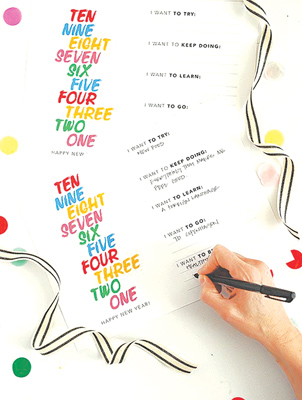 TEN
NINE
EIGHT
SEVEN
SIX
FIVE
FOUR
THREE
TWO
ONE
HAPPY NEW
I WANT TO TRY:
I WANT TO KEEP DOING:
I WANT TO LEARN:
I WANT TO GO:
TEN
NINE
EIGHT
SEVEN
SIX
FIVE
FOUR
THREE
TWO
ONE
HAPPY NEW YEAR!
I WANT TO TRY:
NEW FOOD
I WANT TO KEEP DOING:
EVERYTHING THAT MAKES ME
FEEL GOOD.
I WANT TO LEARN:
A FOREIGN LANGUAGE.
I WANT TO GO:
TO COPENHAGEN!
I WANT TO